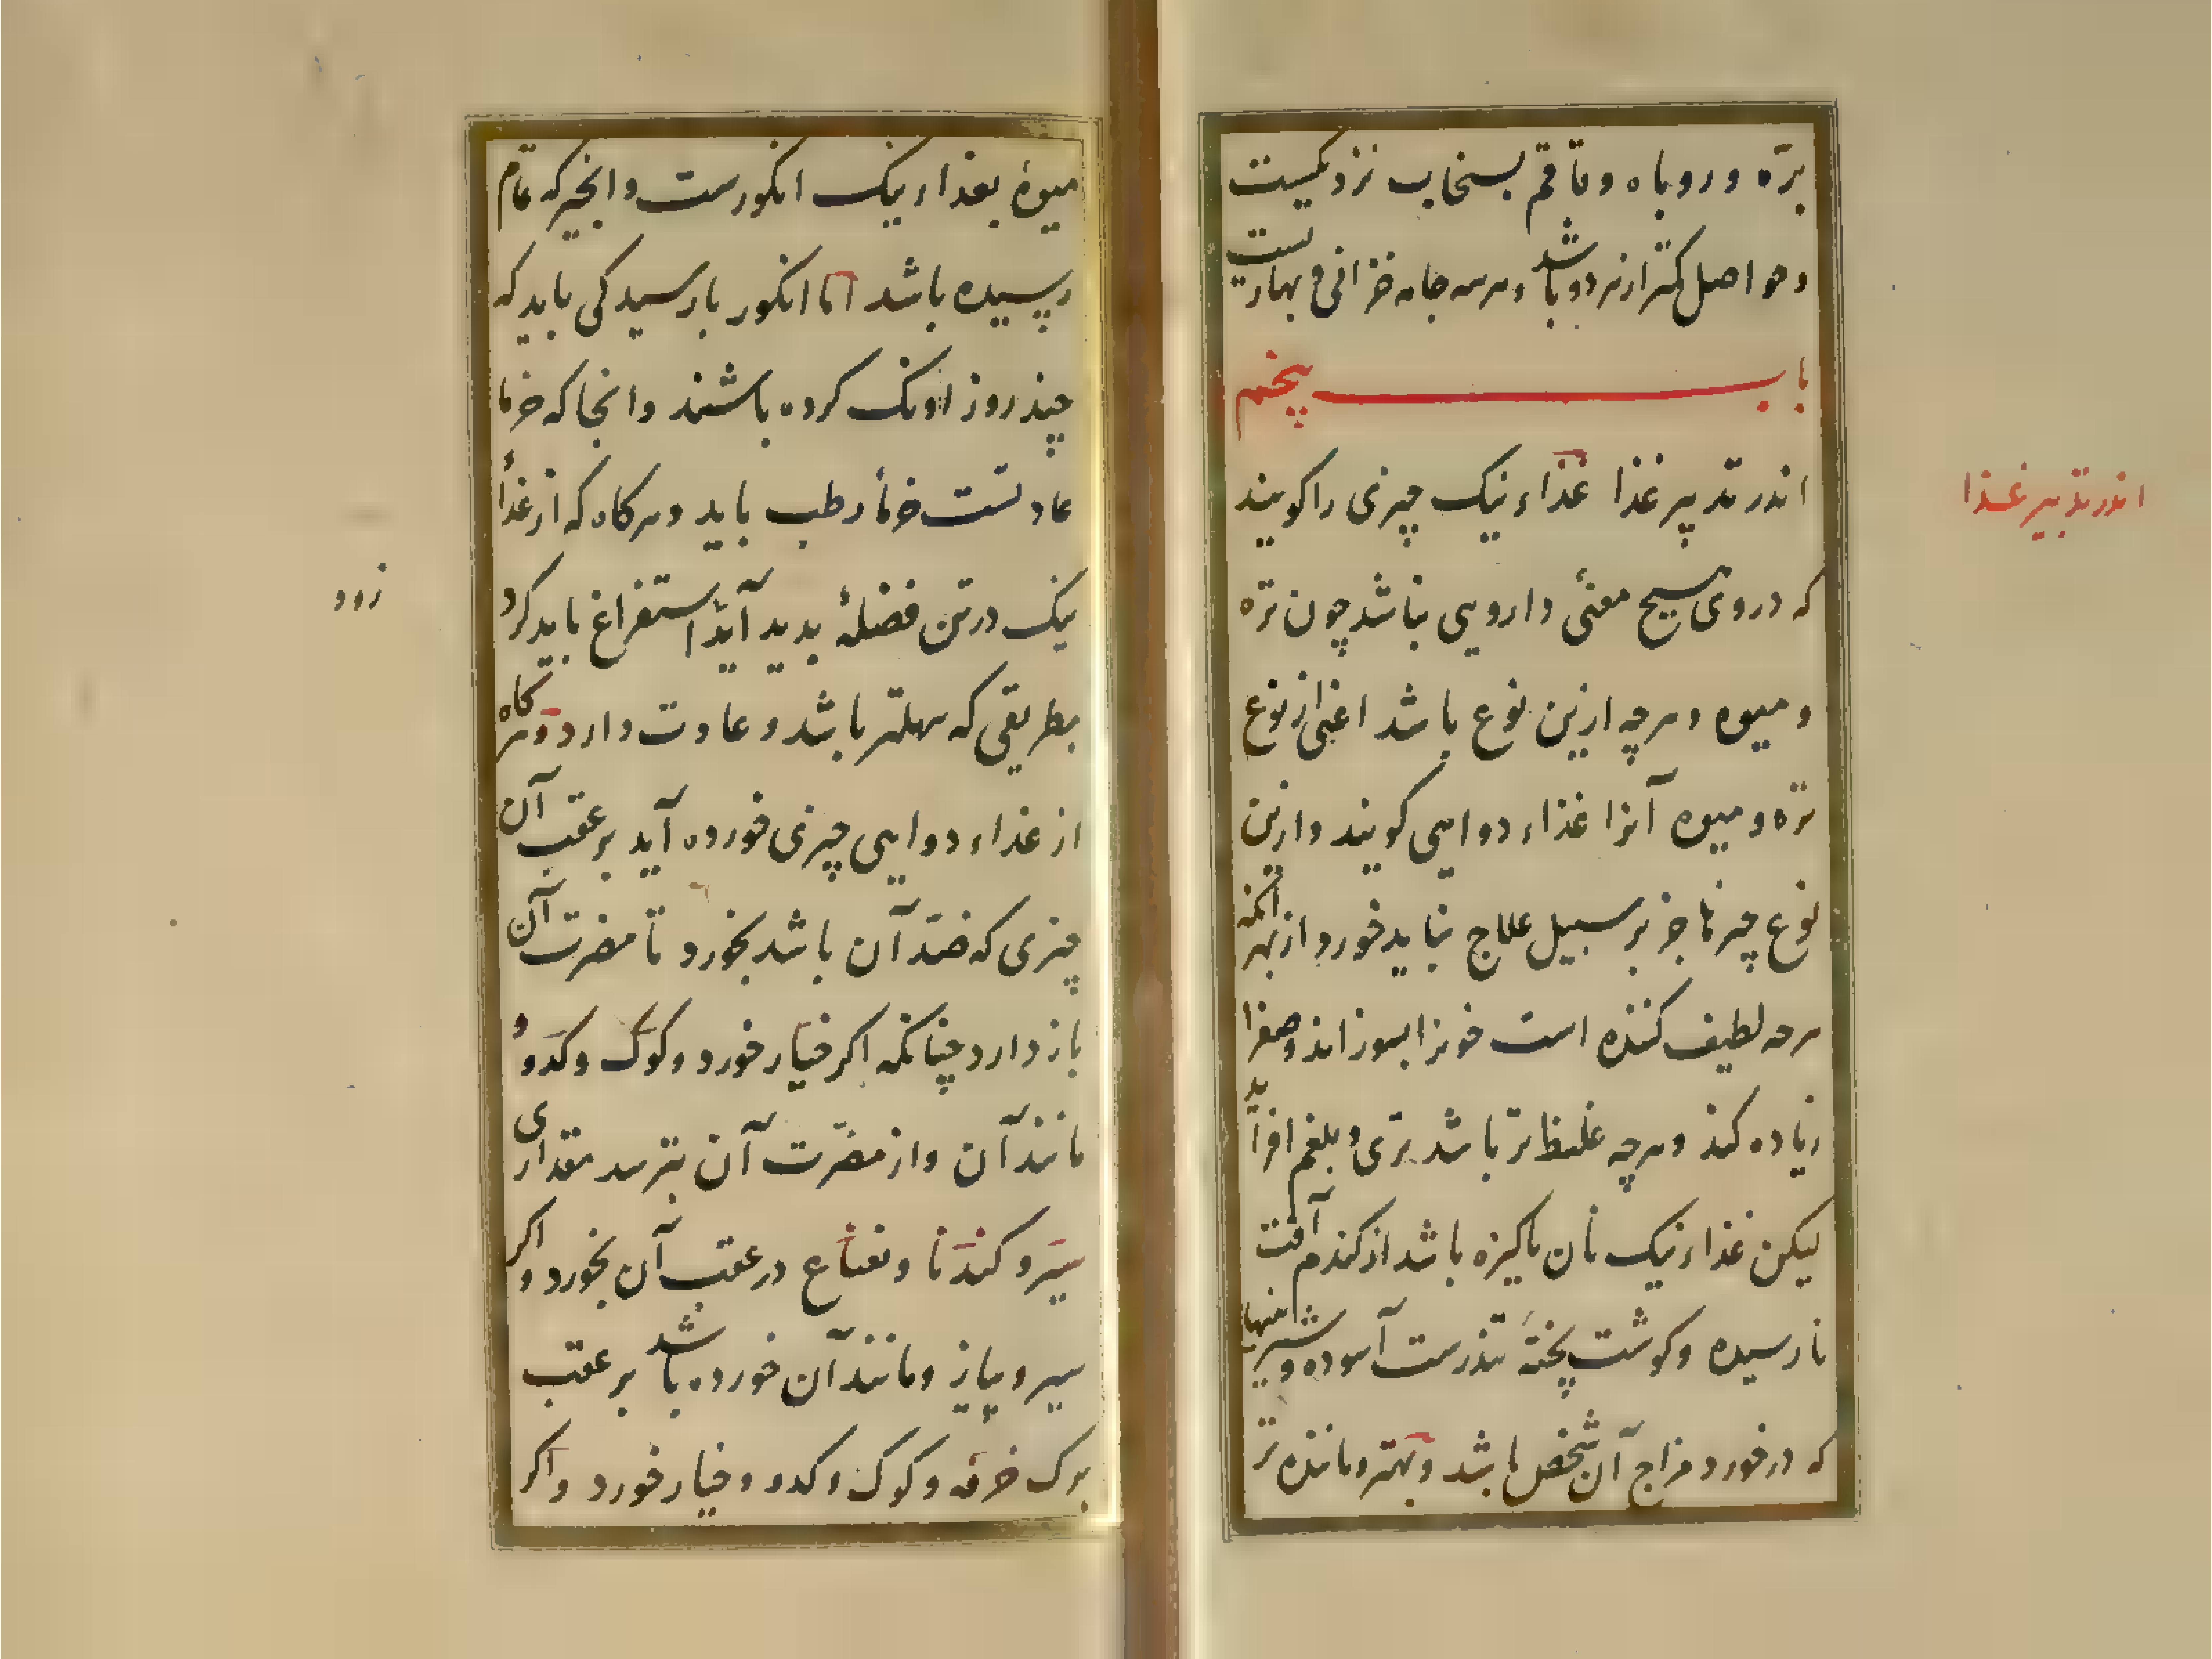 برّه و روباه و قاقم بسنجاب نزدیکست
و حواصل کمتر از هر دو باشد و هر سه جامه خزانی و بهاریست
باب پنجم
اندر تدبیر غذا
اندر تدبیر غذا غذاء نیک چیزی را کویند
که در وی هیچ معنی دارویی نباشد چون ترّه
و میوه و هرچه ازین نوع باشد اعنی از نوع
ترّه و میوه آنرا غذاء دوایی کویند و ازین
نوع چیزها جز بر سبیل علاج نباید خورد از بهر آنکه
هرچه لطیف کننده است خونرا بسوزاند و صفرا
زیاده کند و هرچه غلیظ تر باشد تری و بلغم افزاید
لیکن غذاء نیک نان پاکیزه باشد از کندم آفت
نارسیده و کوشت پختهٔ تندرست آسوده و شیرینیها
که در خورد مزاج آن شخص باشد و بهتر و ماننده تر
میوهٔ بغذاء نیک انکورست و انجیر که تمام
رسیده باشد امّا انکور با رسیدکی باید که
چند روز اونک کرده باشند و انجا که خرما
عادتست خرماء رطب باید و هرکاه که از غذاء
نیک در تن فضلهٔ بدید آید استفراغ باید کرد
زود
بطریقی که سهلتر باشد و عادت دارد و هرکاه
از غذاء دوایی چیزی خورده آید بر عقب آن
چیزی که ضد آن باشد بخورد تا مضرت آن
باز دارد چنانکه اکر خیار خورد و کوک و کدو و
مانند آن و از مضرّت آن بترسد مقداری
سیر و کندنا و نعناع در عقب آن بخورد و اکر
سیر و پیاز و مانند آن خورده باشد بر عقب
برک خرفه و کوک و کدو و خیار خورد و اکر